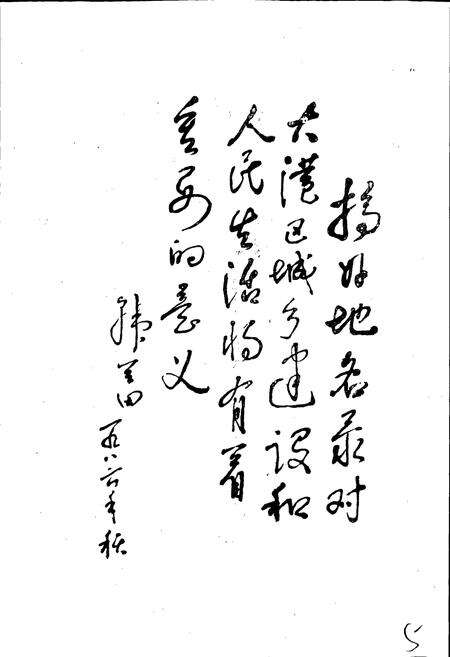 搞好地名录对
大港区城乡建设和
人民生活将有着
重要的意义
韩
一九八六年秋
5